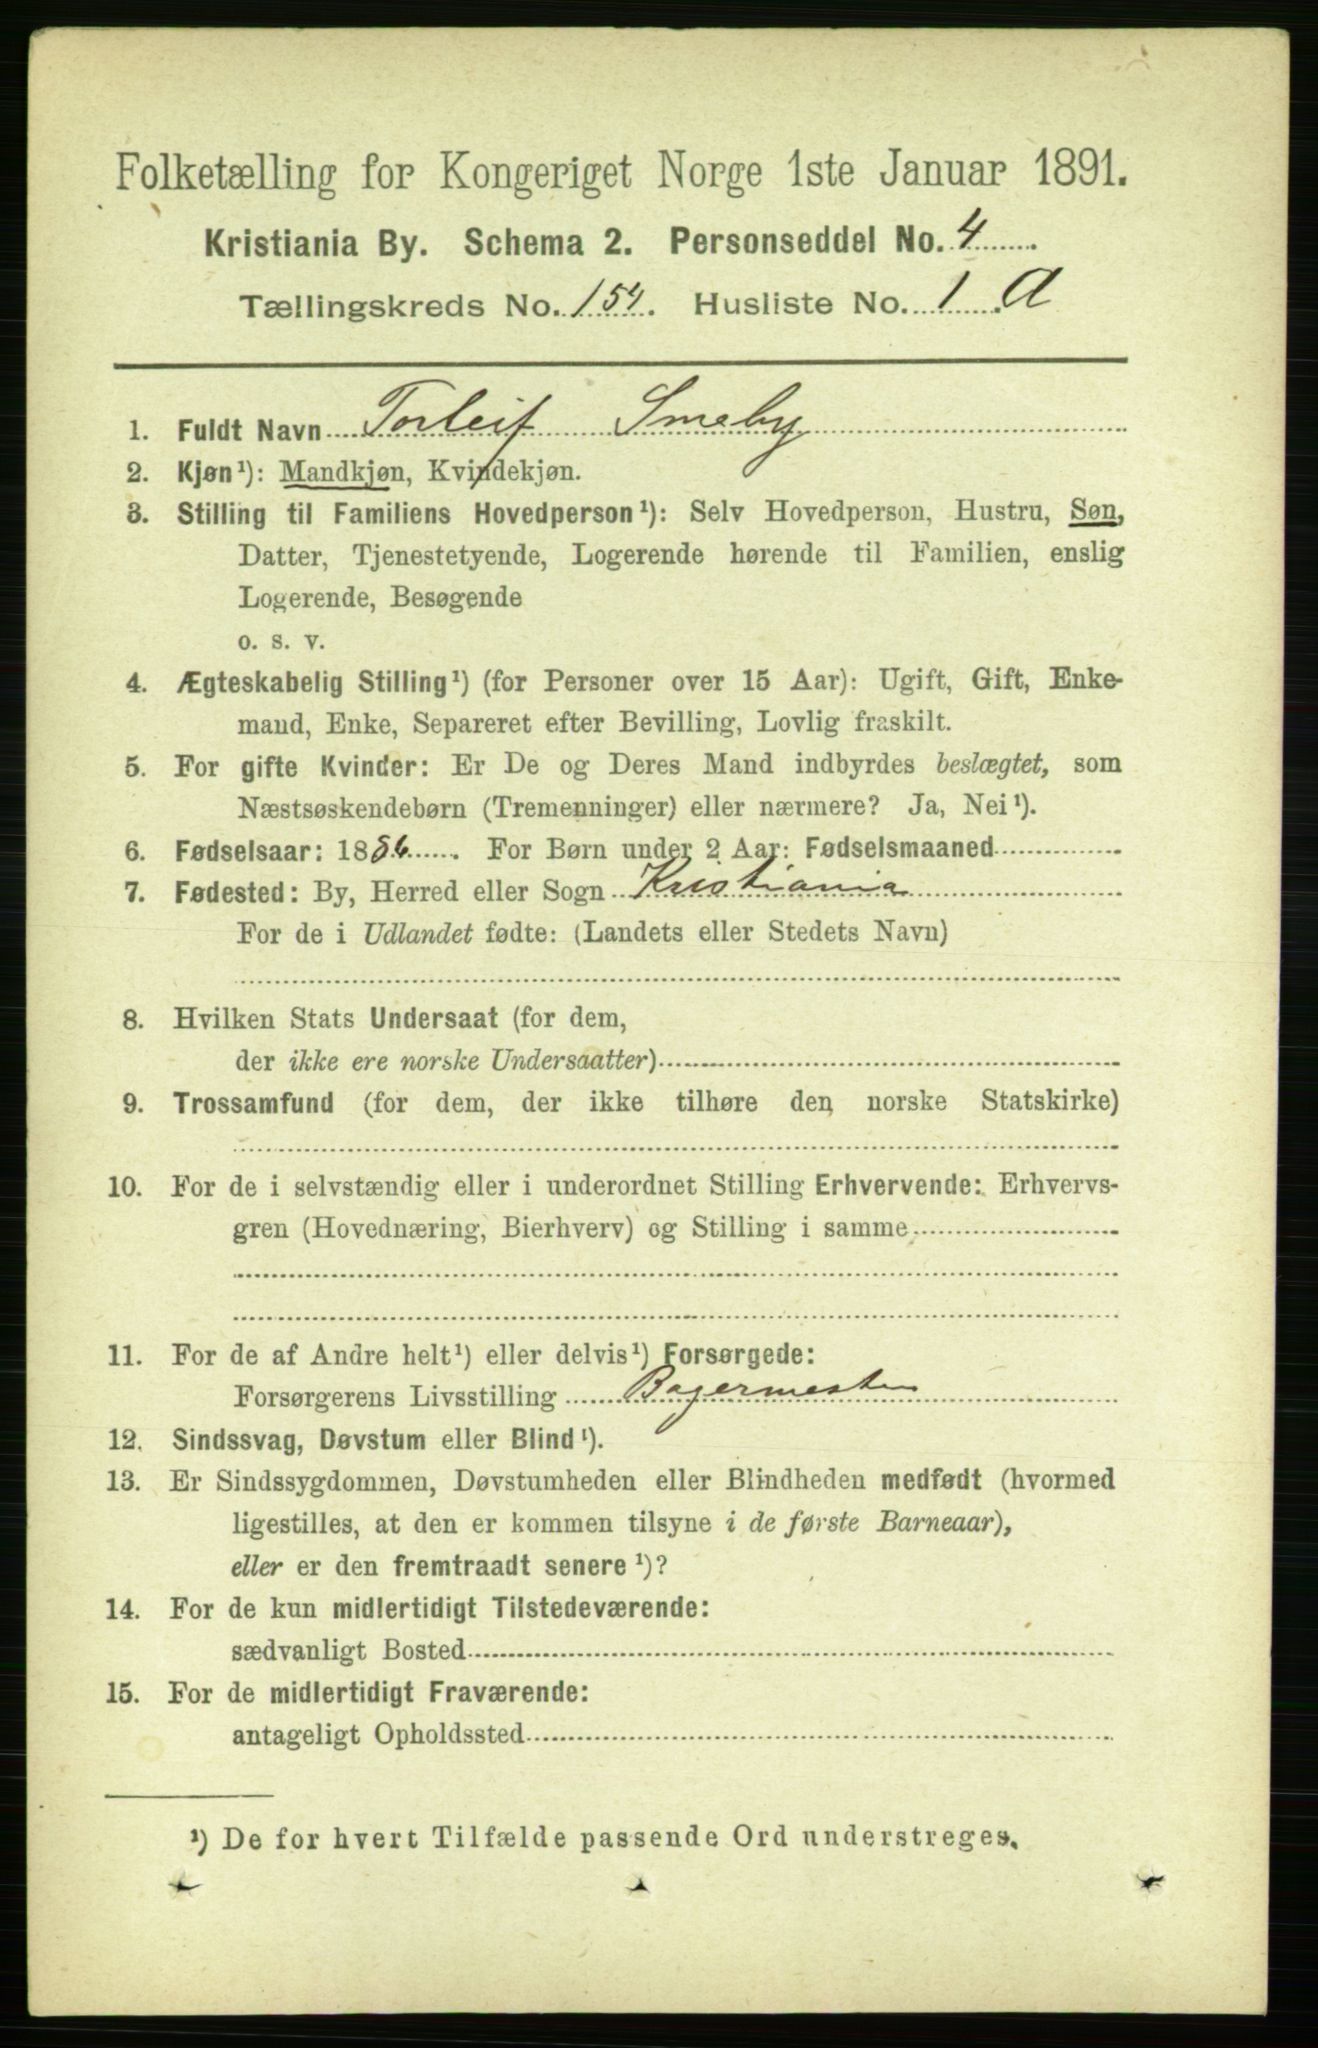 Folketælling for Kongeriget Norge 1ste Januar 1891.
Kristiania By. Schema 2. Personseddel No. 4
Tællingskreds No. 154. Husliste No. 1. A
1. Fuldt Navn Torleif Smeby
2. Kjøn¹): Mandkjøn, Kvindekjøn.
3. Stilling til Familiens Hovedperson¹): Selv Hovedperson, Hustru, Søn,
Datter, Tjenestetyende, Logerende hørende til Familien, enslig
Logerende, Besøgende
o. s. v.
4. Ægteskabelig Stilling¹) (for Personer over 15 Aar): Ugift, Gift, Enke-
mand, Enke, Separeret efter Bevilling, Lovlig fraskilt.
5. For gifte Kvinder: Er De og Deres Mand indbyrdes beslægtet, som
Næstsøskendebørn (Tremenninger) eller nærmere? Ja, Nei¹).
6. Fødselsaar: 1886. For Børn under 2 Aar: Fødselsmaaned
7. Fødested: By, Herred eller Sogn Kristiania
For de i Udlandet fødte: (Landets eller Stedets Navn)
8. Hvilken Stats Undersaat (for dem,
der ikke ere norske Undersaatter)
9. Trossamfund (for dem, der ikke tilhøre den norske Statskirke)
10. For de i selvstændig eller i underordnet Stilling Erhvervende: Erhvervs-
gren (Hovednæring, Bierhverv) og Stilling i samme
11. For de af Andre helt¹) eller delvis¹) Forsørgede:
Forsørgerens Livsstilling Bagermester
12. Sindssvag, Døvstum eller Blind¹).
13. Er Sindssygdommen, Døvstumheden eller Blindheden medfødt (hvormed
ligestilles, at den er kommen tilsyne i de første Barneaar),
eller er den fremtraadt senere¹)?
14. For de kun midlertidigt Tilstedeværende:
sædvanligt Bosted
15. For de midlertidigt Fraværende:
antageligt Opholdssted
¹) De for hvert Tilfælde passende Ord understreges.